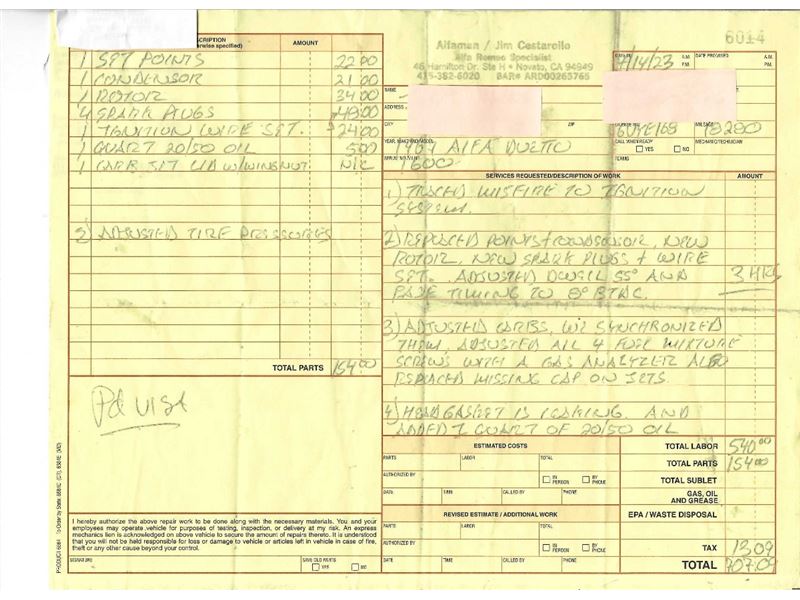 6014
DESCRIPTION
AMOUNT
1 SET POINTS 22 00
1 CONDENSOR 21 00
1 ROTOR 34 00
4 SPARK PLUGS 48 00
1 IGNITION WIRE SET. 24 00
1 QUART 20/50 OIL 5 00
1 CARB JET LID W/WINGNUT N/C
5) ADJUSTED TIRE PRESSURES
TOTAL PARTS 154 00
Pd visa
Alfaman / Jim Cestarollo
Alfa Romeo Specialist
46 Hamilton Dr. Ste H • Novato, CA 94949
415-382-6020 BAR# ARD00265765
DATE PROMISED
A.M.
P.M.
NAME
ADDRESS
CITY
ZIP
MILEAGE
YEAR, MAKE AND MODEL
ALFA DUETTO
1600
CALL WHEN READY
YES NO
MECHANIC/TECHNICIAN
TERMS
SERVICES REQUESTED/DESCRIPTION OF WORK AMOUNT
1) TRACED MISFIRE TO IGNITION
SYSTEM.
2) REPLACED POINTS + CONDENSOR, NEW
ROTOR, NEW SPARK PLUGS + WIRE
SET. ADJUSTED DWELL 55° AND 3 HRS
BASE TIMING TO 8° BTDC.
3) ADJUSTED CARBS, SYNCHRONIZED
THEM, ADJUSTED ALL 4 FUEL MIXTURE
SCREWS WITH A GAS ANALYZER ALSO
REPLACED MISSING CAP ON JETS.
4) HEAD GASKET IS LEAKING. AND
ADDED 1 QUART OF 20/50 OIL
ESTIMATED COSTS
PARTS LABOR TOTAL
AUTHORIZED BY
IN PERSON BY PHONE
DATE TIME CALLED BY PHONE
REVISED ESTIMATE / ADDITIONAL WORK
PARTS LABOR TOTAL
AUTHORIZED BY
IN PERSON BY PHONE
DATE TIME CALLED BY PHONE
TOTAL LABOR 540 00
TOTAL PARTS 154 00
TOTAL SUBLET
GAS, OIL
AND GREASE
EPA / WASTE DISPOSAL
TAX 13 09
TOTAL 707.09
I hereby authorize the above repair work to be done along with the necessary materials. You and your
employees may operate vehicle for purposes of testing, inspection, or delivery at my risk. An express
mechanics lien is acknowledged on above vehicle to secure the amount of repairs thereto. It is understood
that you will not be held responsible for loss or damage to vehicle or articles left in vehicle in case of fire,
theft or any other cause beyond your control.
SIGNATURE
SAVE OLD PARTS
YES NO